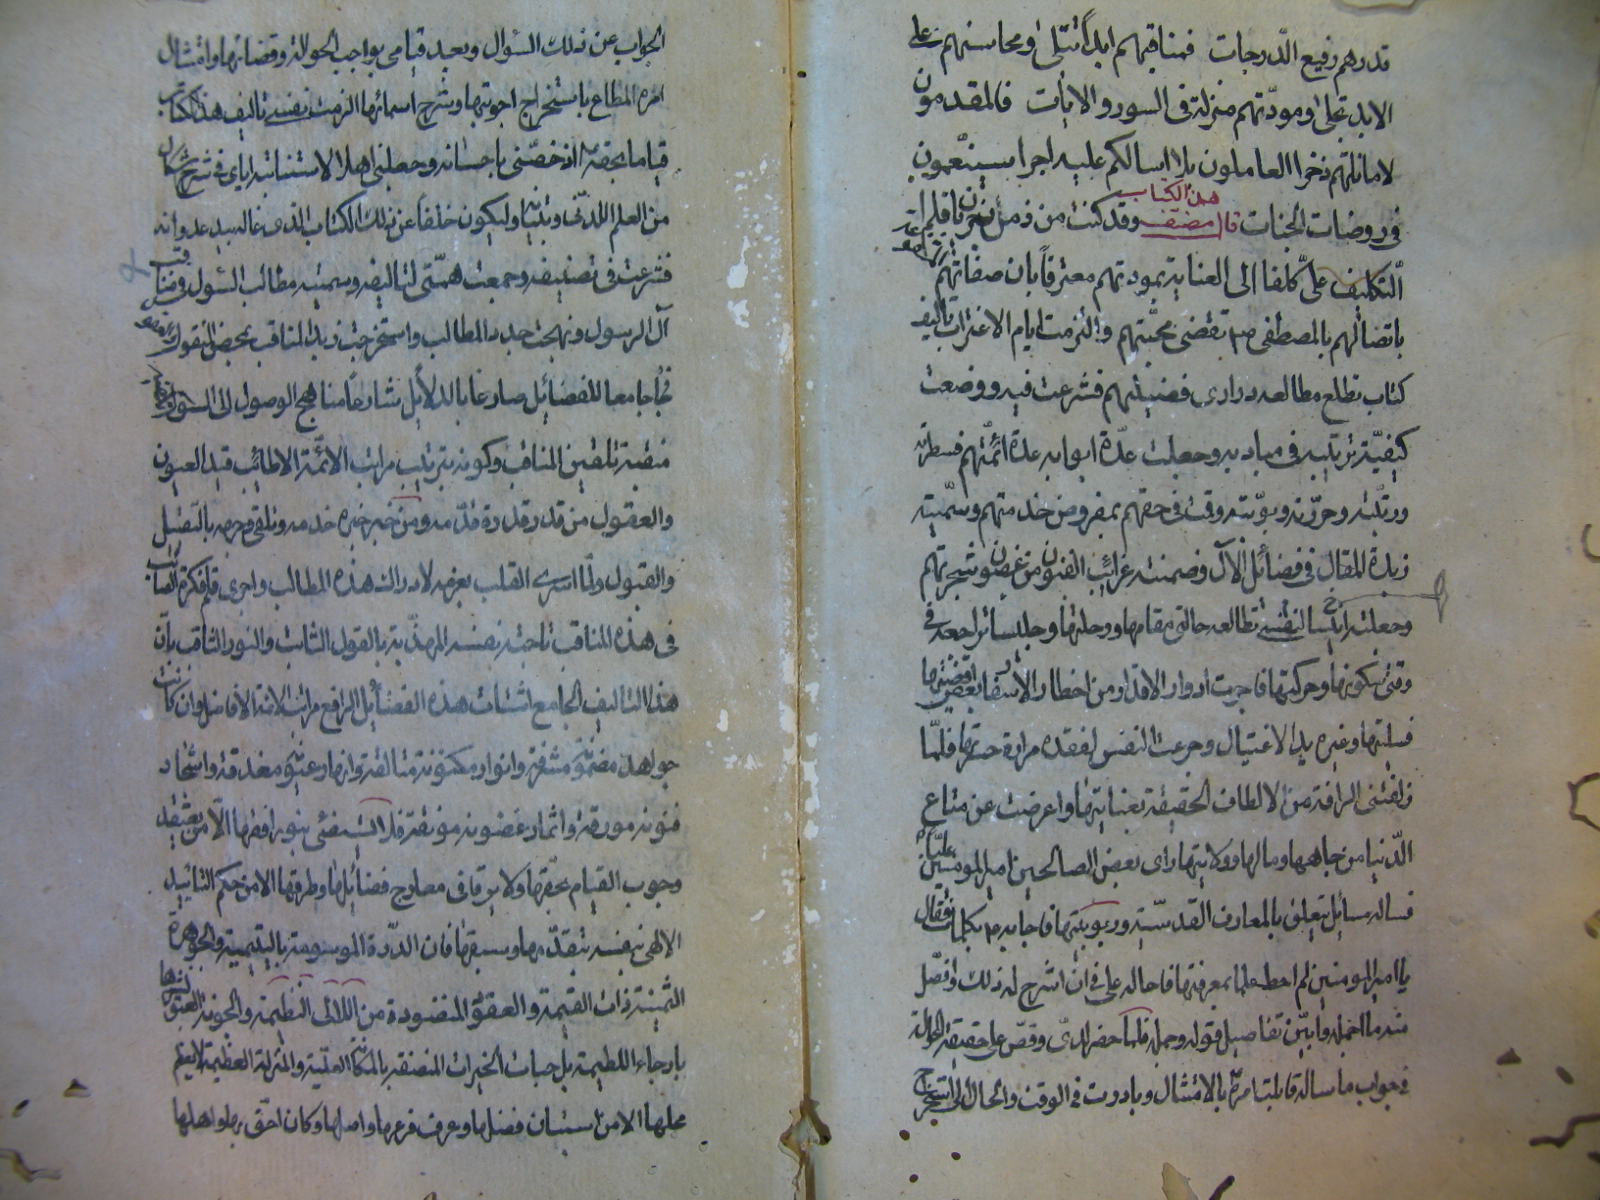 قدرهم رفيع الدّرجات فمناقبهم ابداً تتلى ومحاسنهم على
الابد تجلى ومودّتهم منزلة فى السور والايات فالمقدمون
لامانتهم ذخرا العاملون بلا اسالكم عليه اجرا سينعّمون
هذا الكتاب
فى روضات الجنات قال مصنف وقد كنت من زمن
التكليف علىّ كلفا الى العناية بمودتهم معترفاً بان صفاتهم
باتصالهم بالمصطفى ص تقتضى محبّتهم والتزمت ايام الاغتراب تاليف
كتاب يطلع مطالعه درارى فضيلتهم فشرعت فيه ووضعت
كيفيّة ترتيبه فى مباديه وجعلت عدّة ابوابه عدة ائمّتهم فسطرته
ورتبّته وحرّرته وبوّبته وقمت فى حقهم بمفروض خدمتهم وسمّيته
زبدة المقال فى فضائل الآل وضمنته غرائب الفنون من غصون شجرتهم
وجعلته انيسا لنفسى تطالعه حالتى مقامها ورحلتها وجليسا تراجعه فى
وقتى سكونها وحركتها فاجرت ادوار الاقدار من اخطار الاسفار بعض اقضيتها
فسلبتها وغيره يد الاغتيال وجرعت النفس لفقده مرارة حسرتها فلمّا
زلفتنى الرافة من الالطاف الحقيقة بعنايتها واعرضت عن متاع
الدّنيا من جاهها ومالها وولايتها راى بعض الصالحين امير المومنين عليّا
فساله مسائل يتعلق بالمعارف القدسيّة وربوبيّتها فاجابه بكلمات فقال
يا امير المومنين لم احط علما بمعرفتها فاحاله على فى ان اشرح له ذلك وافصّل
منه ما اجمله وابيّن تفاصيل قوله وجمله فلما حضر لدىّ وقصّ على حقيقة الحوالة
فى جواب ما ساله قابلت امره بالامتثال وبادرت فى الوقت والحال الى استخراج
الجواب عن ذلك السّوال وبعد قيامى بواجب الحوالة وقضائها وامتثال
امره المطاع باستخراج اجوبتها وشرح اسمائها الزمت نفسى تاليف هذا الكتاب
قياما بحقه اذ خصّنى باحسانه وجعلنى اهلا لاستنابته اياى فى شرح
من العلم اللدنّى وتبيانه وليكون خلفا عن ذلك الكتاب الذى
فشرعت فى تصنيفه وجمعت همّتى لتاليفه وسميته مطالب السّول فى مناقب
آل الرسول ونهجت جدد المطالب واستخرجت زبد المناقب بمحض النقول
جامعا للفضائل صادعا بالدلائل شارعا مناهج الوصول الى السول
منقبة تلقين المناقب وكونه بترتيب مراتب الائمّة الاطائب قيد العيون
والعقول من قدر قدره قدّمه ومن خبر خبره خدمه وتلقى وجهه بالتقبيل
والقبول ولمّا اسرى القلب بعزمه لادراك هذه المطالب واجرى قلم فكره الصائب
فى هذه المناقب ناجته نفسه المهذّبة بالقول الثابت والنور الثاقب بانّ
هذا التاليف الجامع اشتات هذه الفضائل الرافع مراتب الائمة الافاضل وان كانت
جواهر مضيّة مشرقة وانوار مكنونة متالقة وازهار مغدقة واشجار
فنونه مورقة واثمار غصونه مونقة فلا يستضئ بنور افقها الّا من يعتقد
وجوب القيام بحقها ولا يرقى فى معارج فضائلها وطرقها الا من حكم التاييد
الالهى نفسه بتقدّمها وسبقها فان الدّرة الموسومة باليتيمة والجوهرة
الثمينة ذات القيمة والعقود المنضودة من اللالى النظيمة
بارجاء اللطيمة بل جبات الخيرات المتصفة بالمكانة العليّة والمنزلة العظيمة لا يعلم
محلها الا من استبان فضلها وعرف فرعها واصلها وكان احقّ بها واهلها